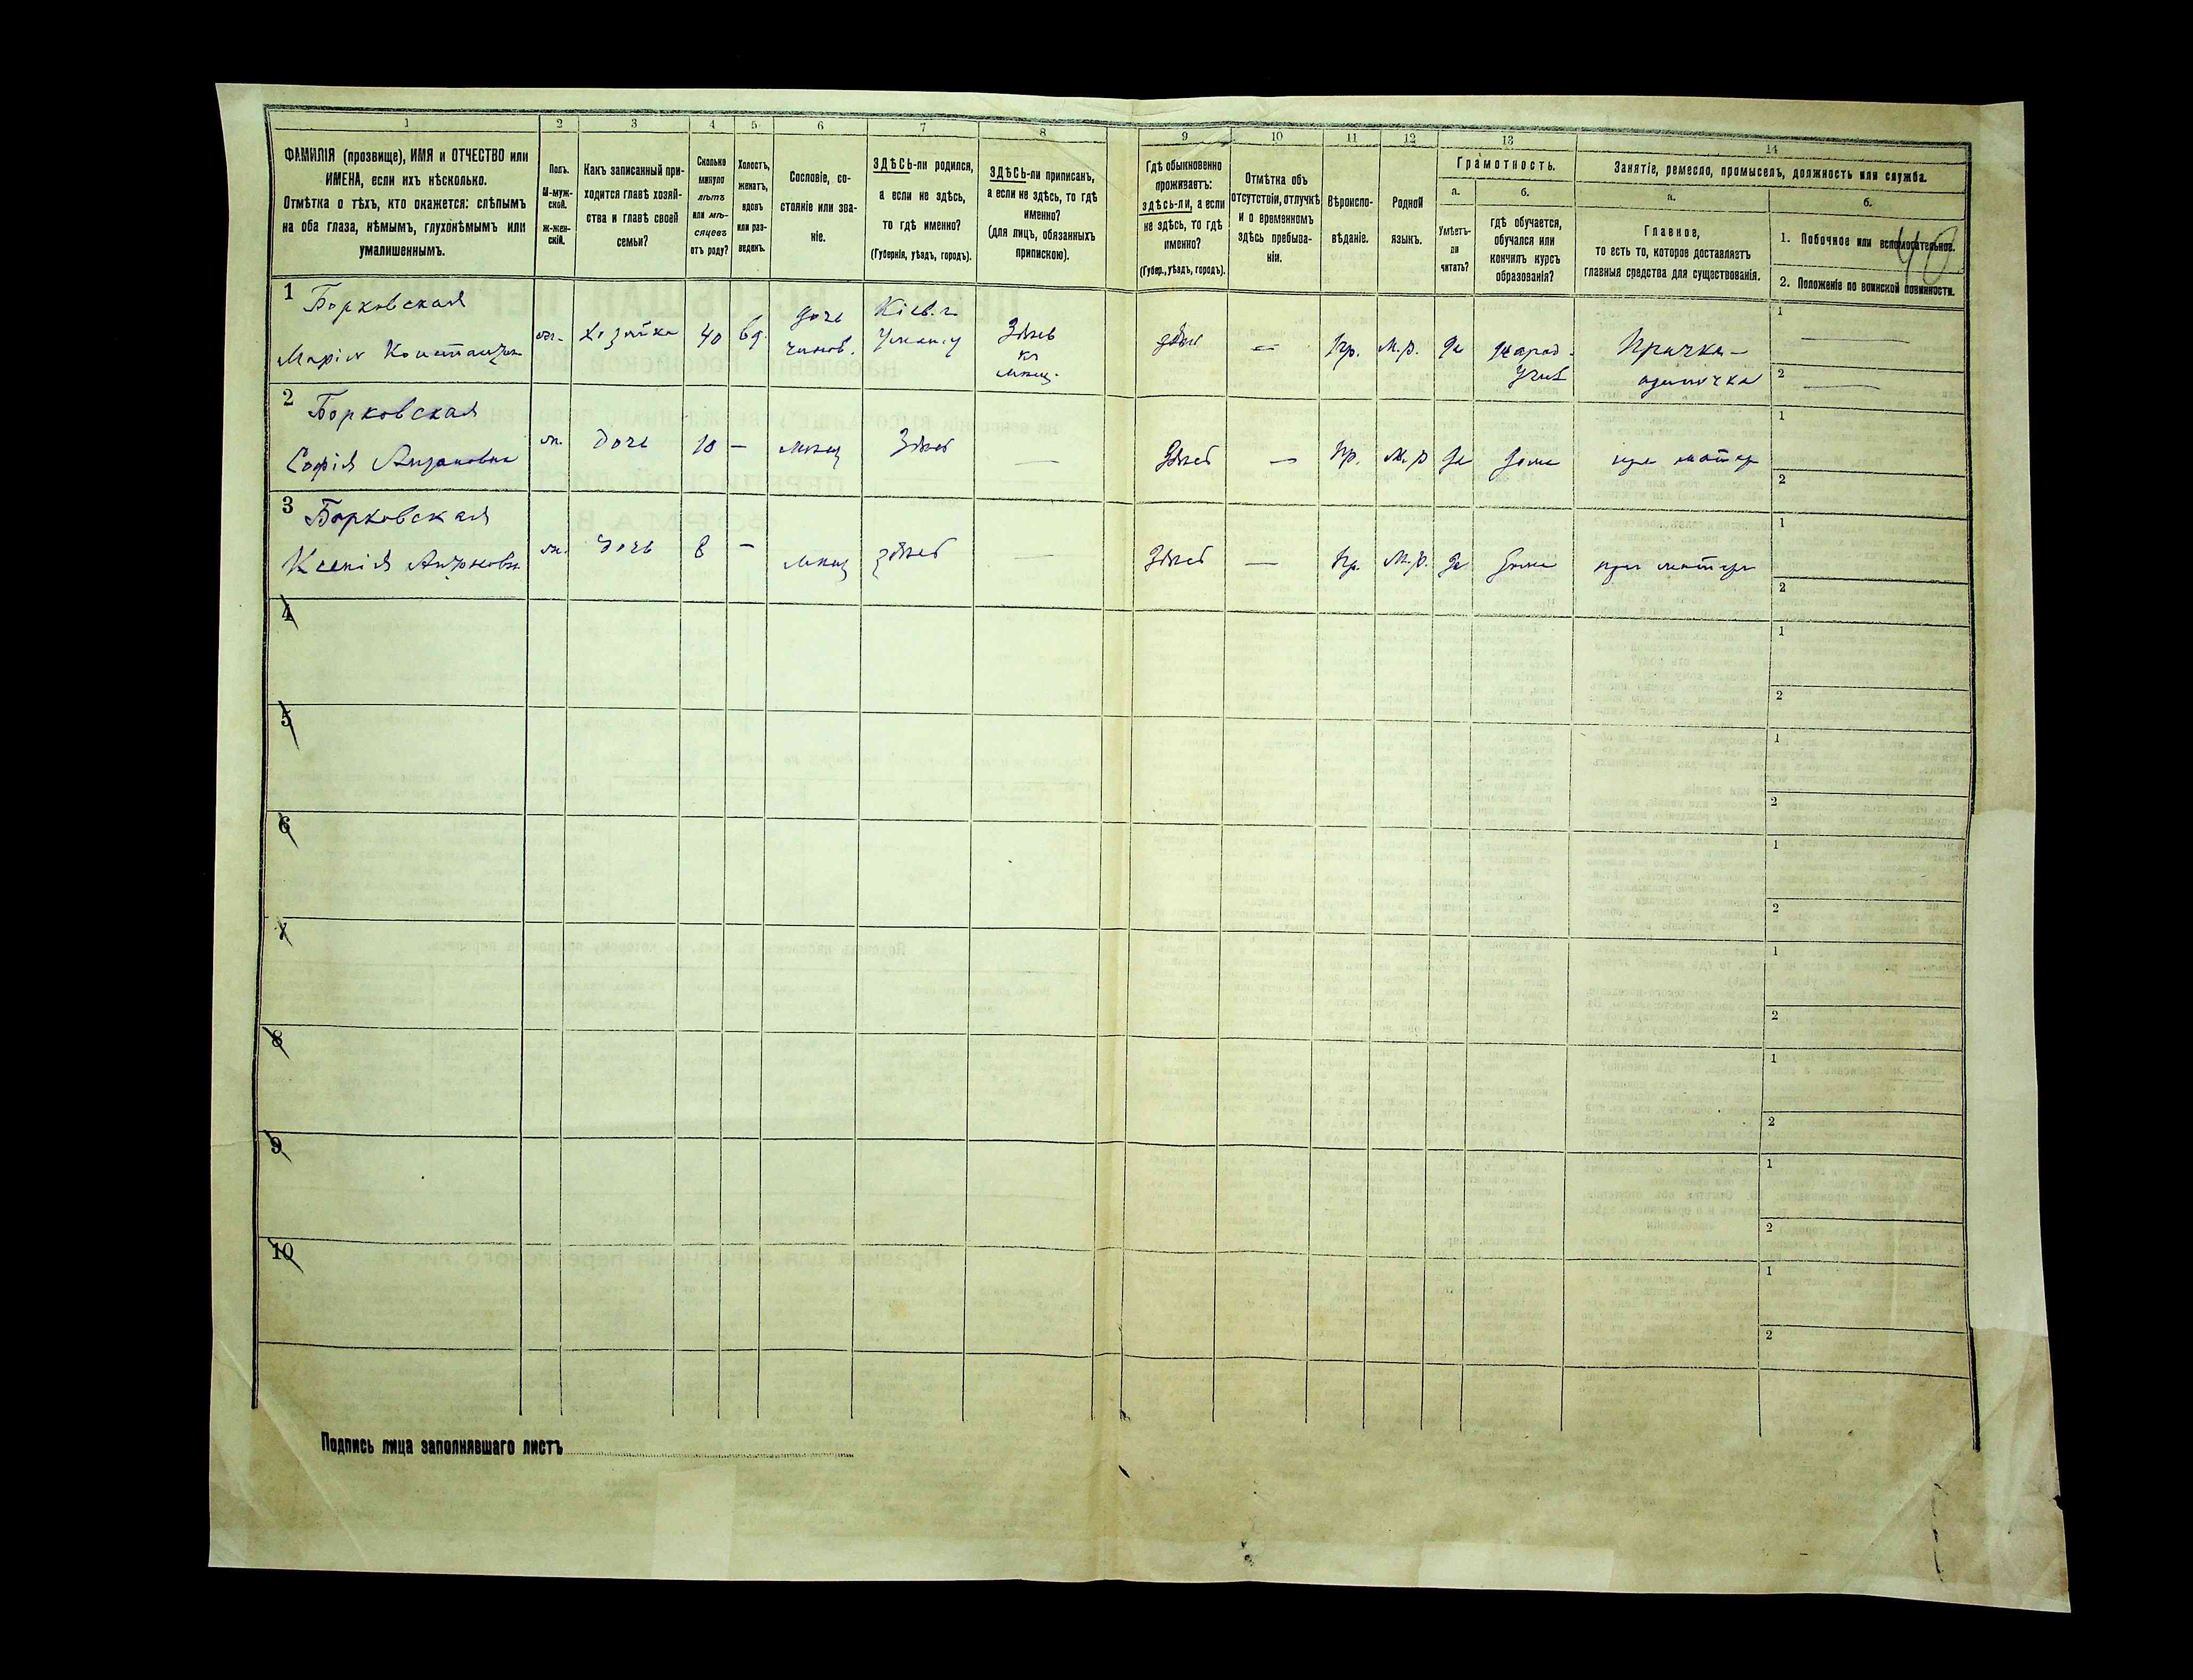 1 2 3 4 5 6 7 8 9 10 11 12 13 14
ФАМИЛІЯ (прозвище), ИМЯ и ОТЧЕСТВО или
ИМЕНА, если ихъ нѣсколько.
Отмѣтка о тѣхъ, кто окажется: слѣпымъ
на оба глаза, нѣмымъ, глухонѣмымъ или
умалишеннымъ.
Полъ.
М-муж-
ской.
ж-жен-
скій.
Какъ записанный при-
ходится главѣ хозяй-
ства и главѣ своей
семьи?
Сколько
минуло
лѣтъ
или мѣ-
сяцевъ
отъ роду?
Холостъ,
женатъ,
вдовъ
или раз-
веденъ.
Сословіе, со-
стояніе или зва-
ніе.
ЗДѢСЬ-ли родился,
а если не здѣсь,
то гдѣ именно?
(Губернія, уѣздъ, городъ).
ЗДѢСЬ-ли приписанъ,
а если не здѣсь, то гдѣ
именно?
(для лицъ, обязанныхъ
припискою).
Гдѣ обыкновенно
проживаетъ:
здѣсь-ли, а если
не здѣсь, то гдѣ
именно?
(Губер., уѣздъ, городъ).
Отмѣтка объ
отсутствіи, отлучкѣ
и о временномъ
здѣсь пребыва-
ніи.
Вѣроиспо-
вѣданіе.
Родной
языкъ.
Грамотность.
а.
Умѣетъ-
ли
читать?
б.
гдѣ обучается,
обучался или
кончилъ курсъ
образованія?
Занятіе, ремесло, промыселъ, должность или служба.
а.
Главное,
то есть то, которое доставляетъ
главныя средства для существованія.
б.
1. Побочное или вспомогательное.
2. Положеніе по воинской повинности.
40
1 Борковская
Марія
ж. Хозяйка 40 вд.
дочь
чинов.
Кіев. г.
Уман. у
Здѣсь
къ
мѣщ.
—
Пр. М.р. да
Народ.
Прачка —
одиночка
1 —
2 —
2 Борковская
Софія
ж. Дочь 10 — мѣщ Здѣсь — Здѣсь — Пр. М.р да дома при матери
1
2
3 Борковская
Ксенія
ж. Дочь 8 — мѣщ здѣсь — Здѣсь — Пр. М.р. да дома при матери
1
2
4
1
2
5
1
2
6
1
2
7
1
2
8
1
2
9
1
2
10
1
2
Подпись лица заполнявшаго листъ